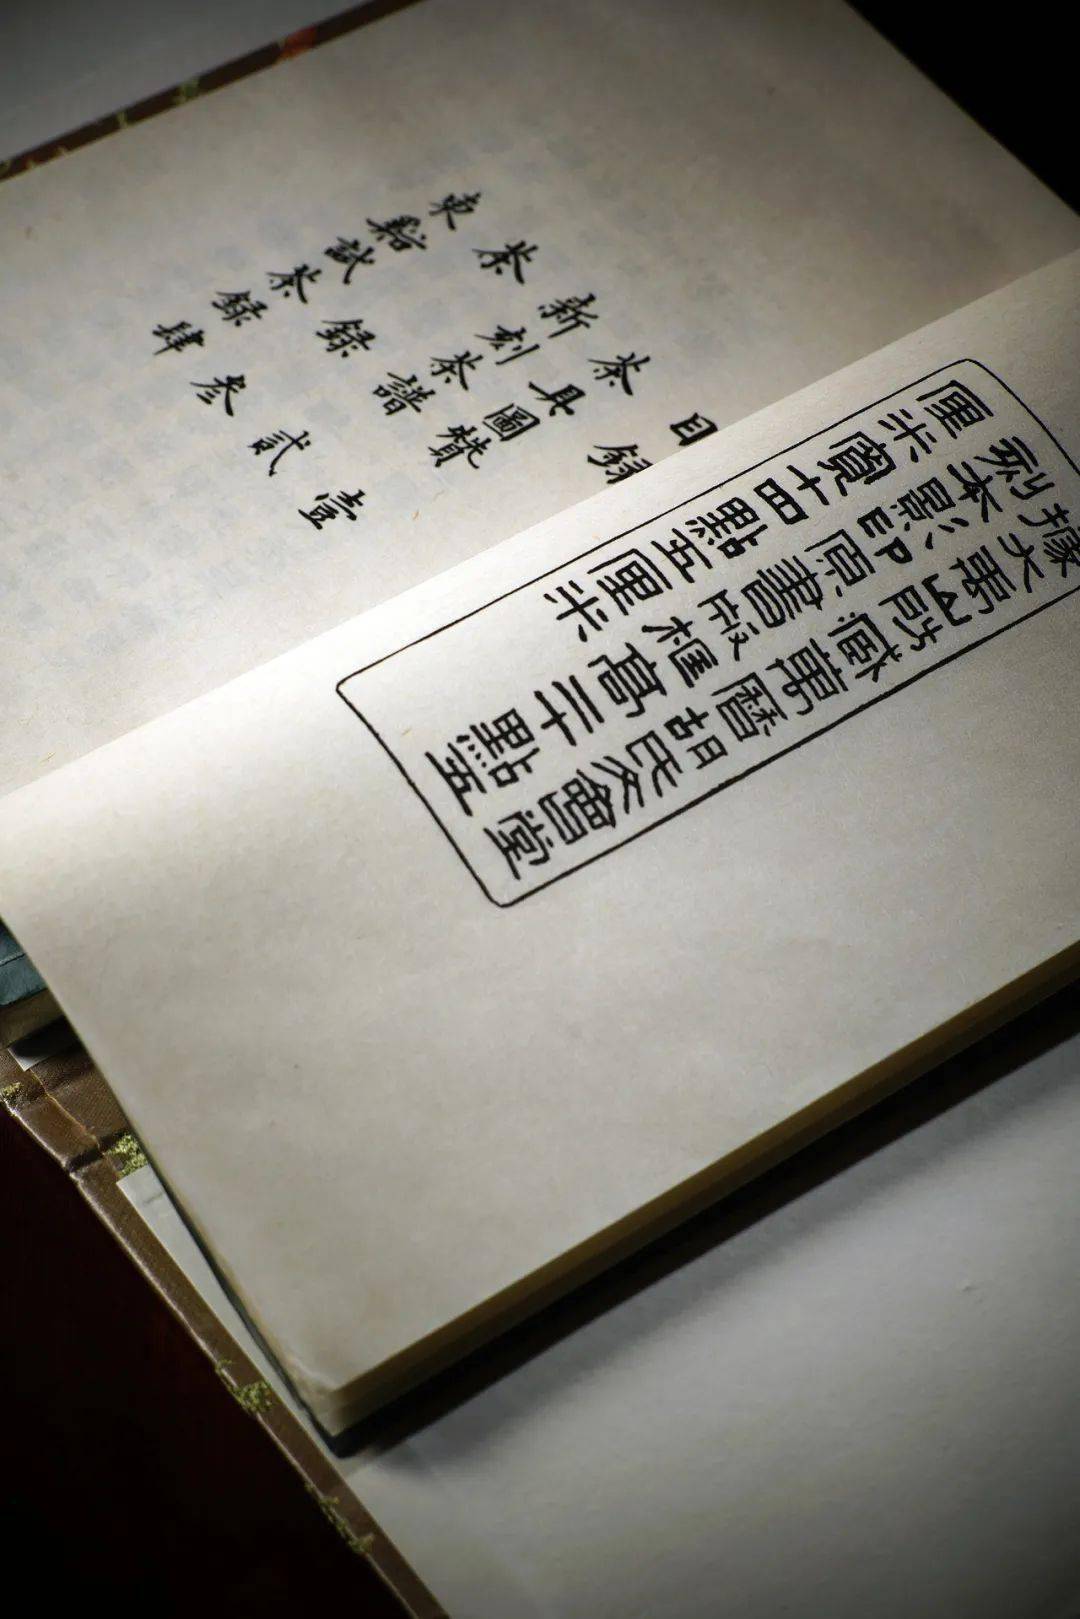 目録
茶具圖贊 壹
新刻茶譜 貳
茶録 叁
東谿試茶録 肆
據大山藏萬曆胡氏文會堂
刻本影印原書版框高二十點五
厘米寬十四點五厘米